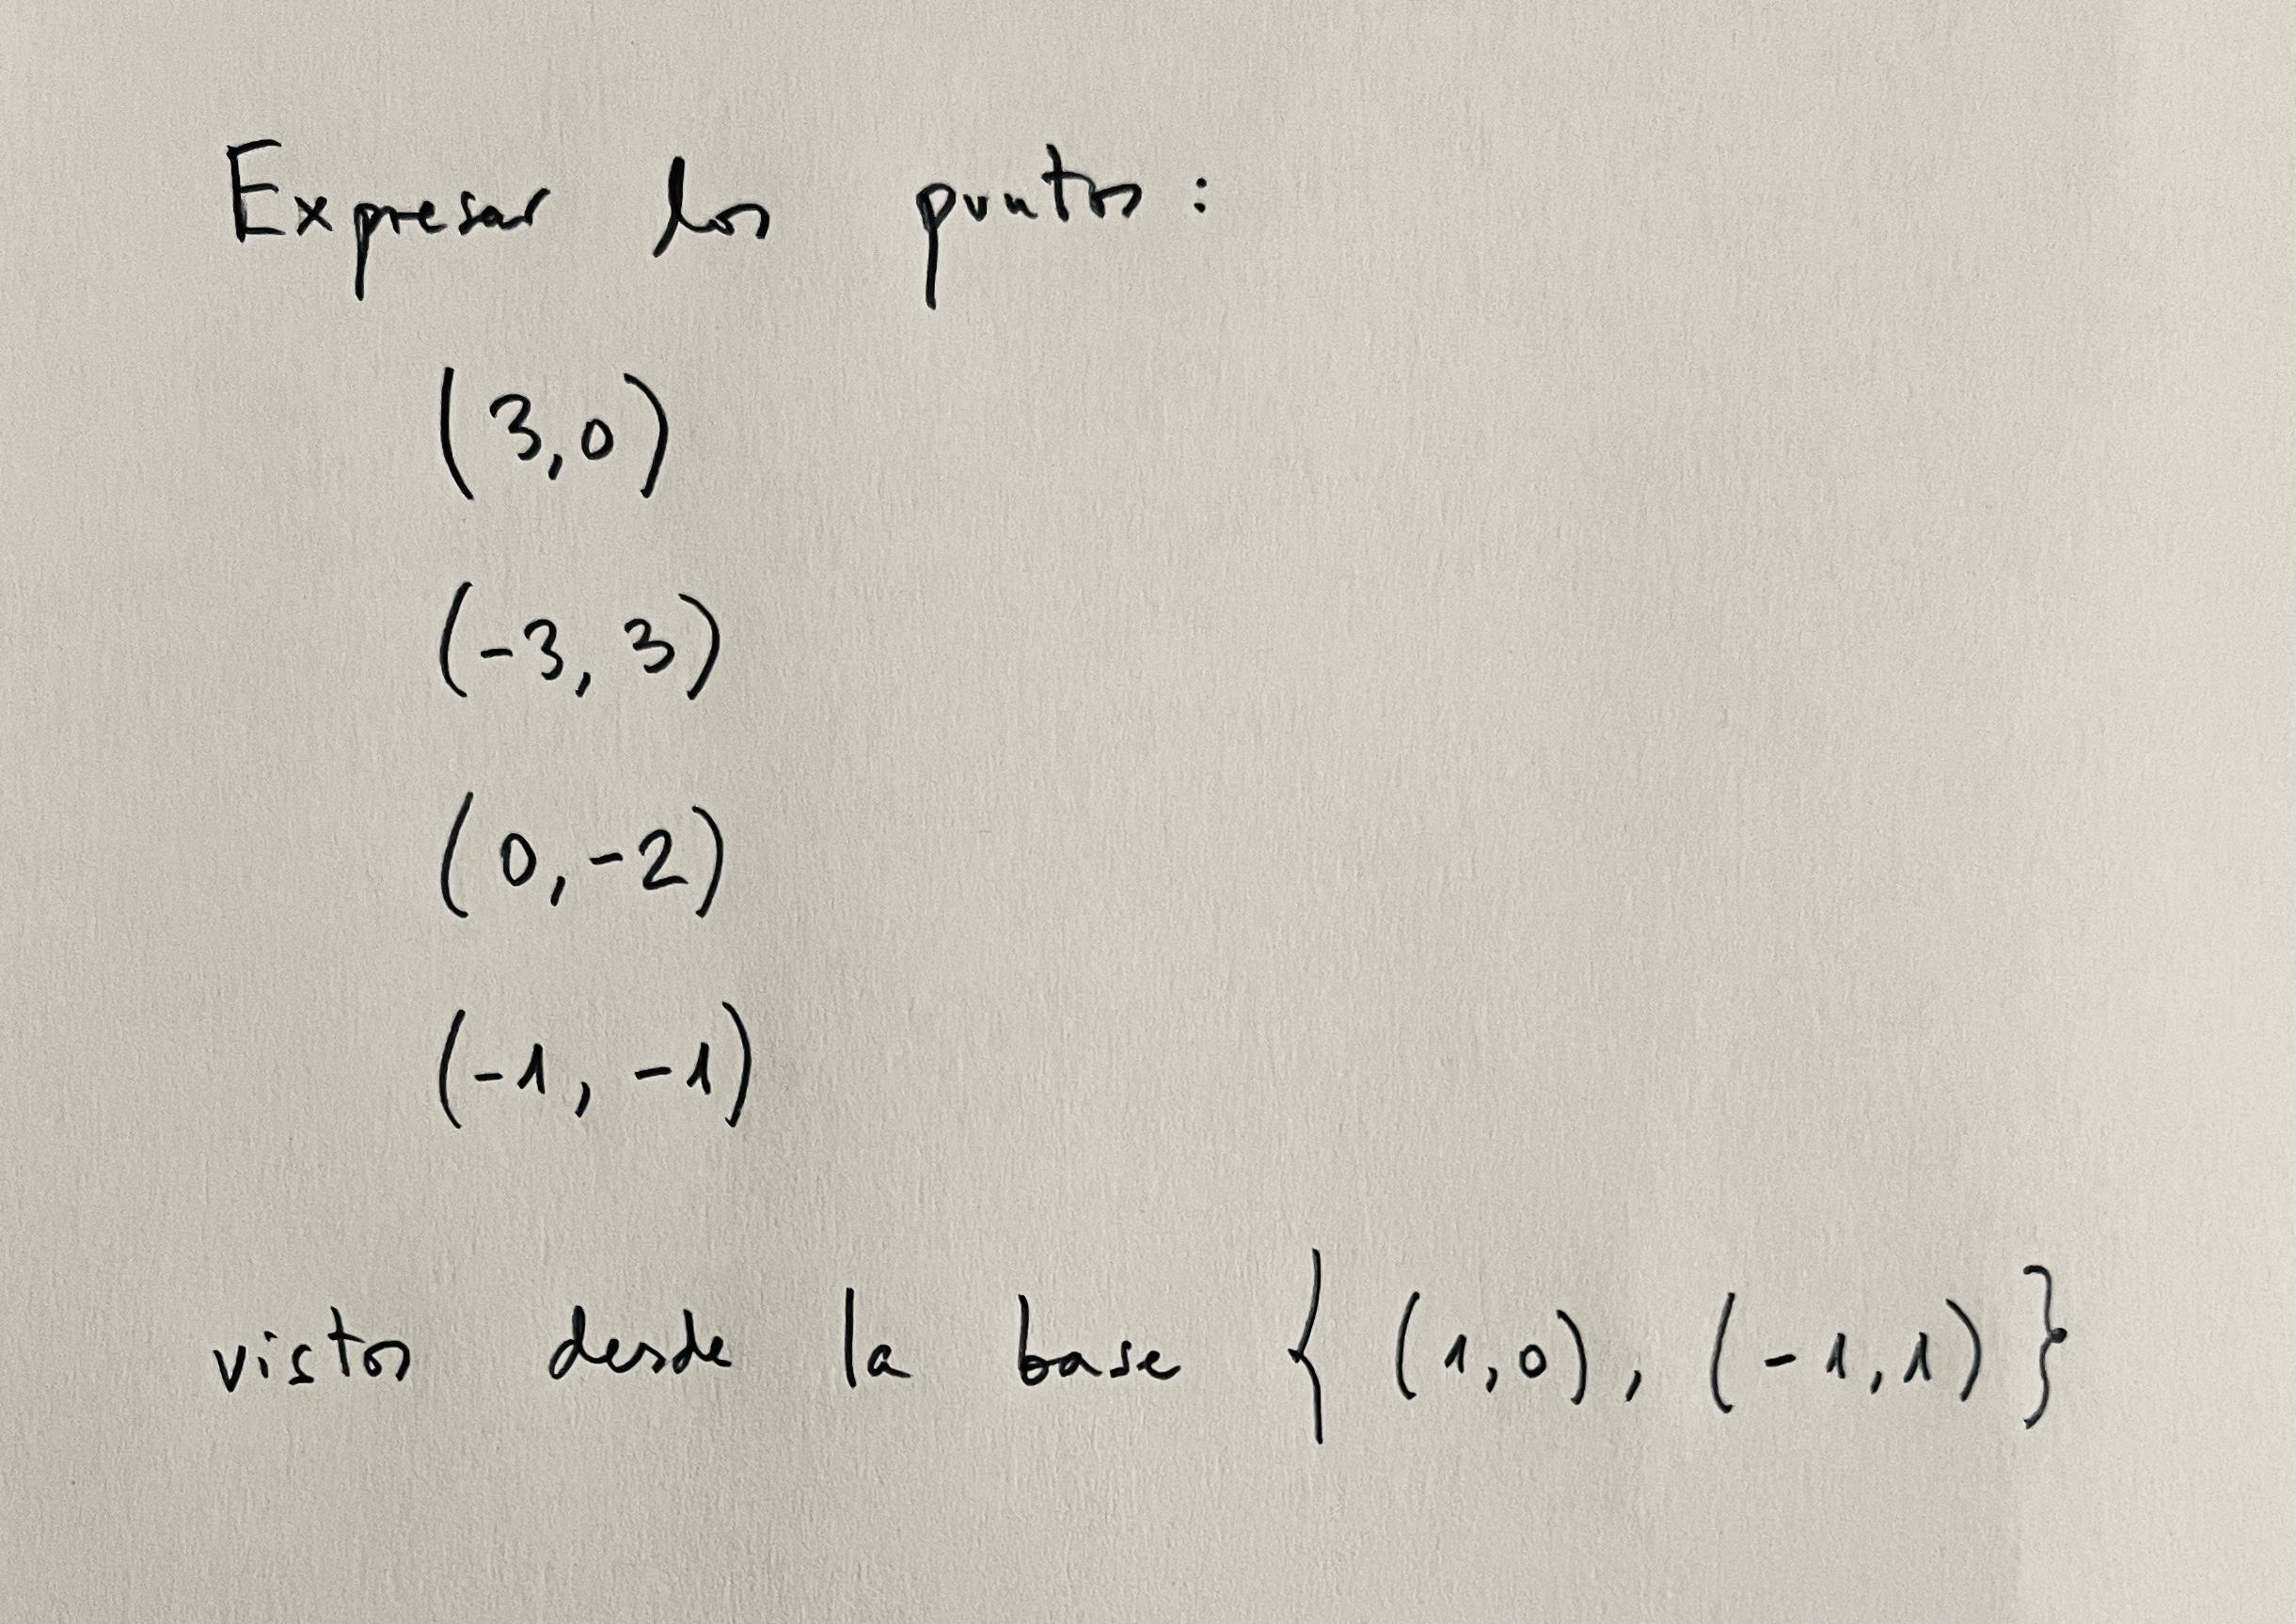 Expresar los puntos:
(3,0)
(-3, 3)
(0,-2)
(-1, -1)
vistos desde la base { (1,0), (-1,1) }